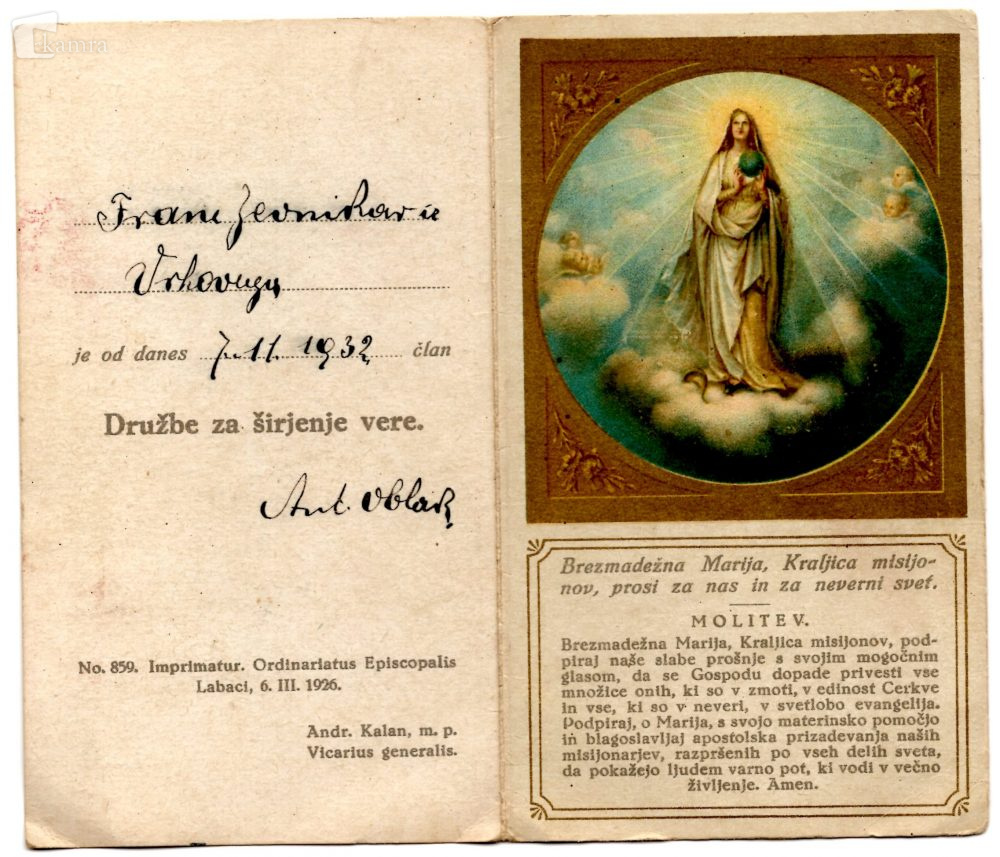 kamra
Franc Jevnikar iz
Vrhovega
je od danes 7. 11. 1932 član
Družbe za širjenje vere.
Ant. Oblak
No. 859. Imprimatur. Ordinariatus Episcopalis
Labaci, 6. III. 1926.
Andr. Kalan, m. p.
Vicarius generalis.
Brezmadežna Marija, Kraljica misijo-
nov, prosi za nas in za neverni svet.
MOLITEV.
Brezmadežna Marija, Kraljica misijonov, pod-
piraj naše slabe prošnje s svojim mogočnim
glasom, da se Gospodu dopade privesti vse
množice onih, ki so v zmoti, v edinost Cerkve
in vse, ki so v neveri, v svetlobo evangelija.
Podpiraj, o Marija, s svojo materinsko pomočjo
in blagoslavljaj apostolska prizadevanja naših
misijonarjev, razpršenih po vseh delih sveta,
da pokažejo ljudem varno pot, ki vodi v večno
življenje. Amen.